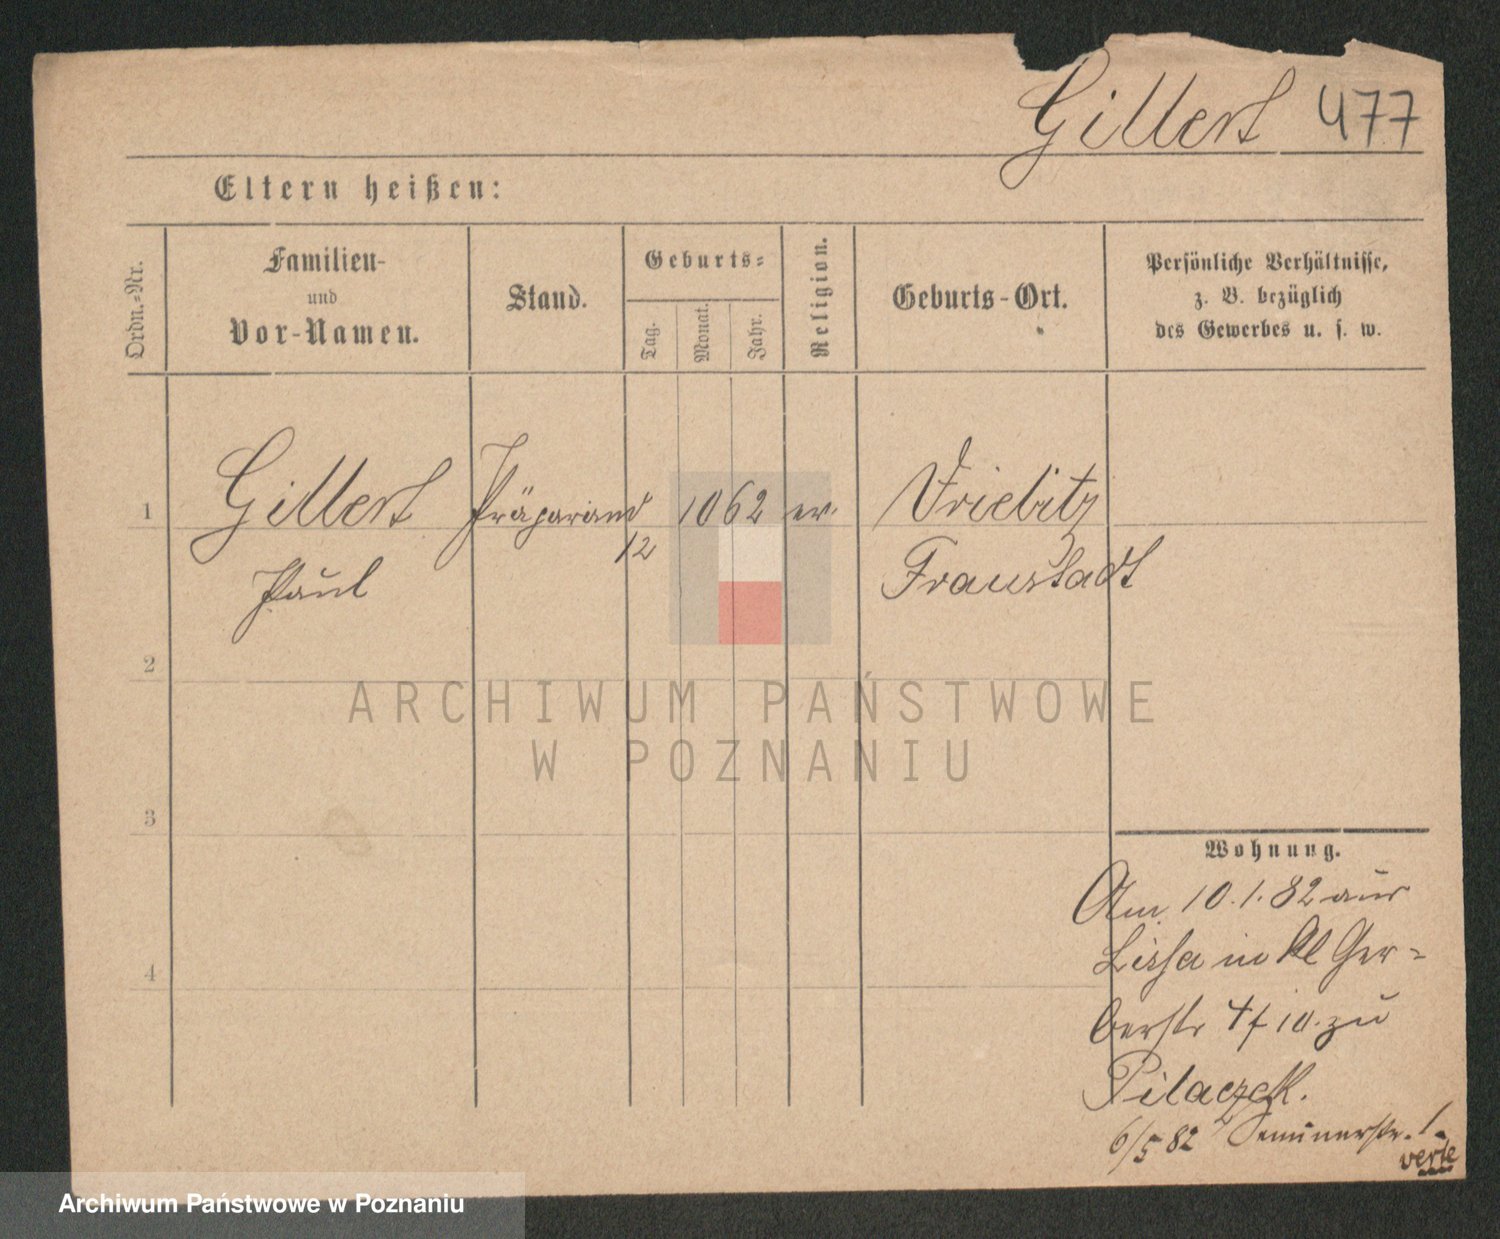 Gillert 477
Eltern heißen:
Ordn.=Nr.
Familien-
und
Vor-Namen.
Stand.
Geburts=
Tag.
Monat.
Jahr.
Religion.
Geburts-Ort.
Persönliche Verhältnisse,
z. B. bezüglich
des Gewerbes u. s. w.
1 Gillert Präparand 10 62 ev. Driebitz
12
Paul Fraustadt
2
ARCHIWUM PAŃSTWOWE
W POZNANIU
3
Wohnung.
Am 10.1.82 aus
Lissa in Kl Ger=
berstr 4 f 10. zu
Pilaczek.
4
6/5 82 Seminarstr. 1.
verte
Archiwum Państwowe w Poznaniu